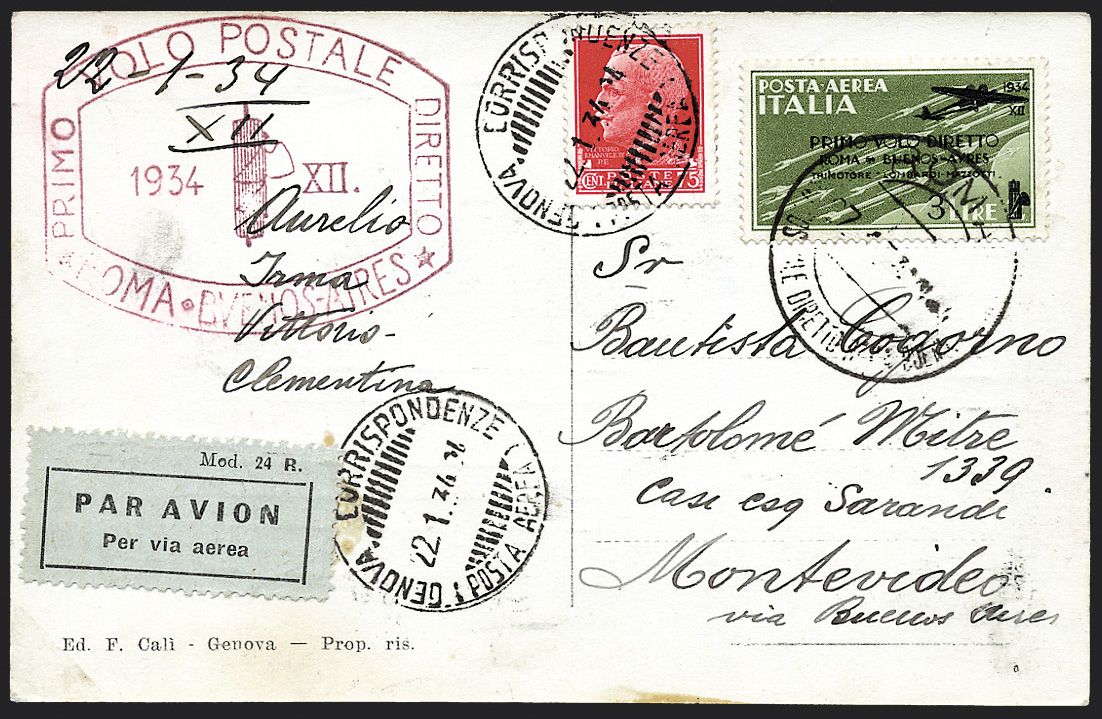 22-1-34
XII
PRIMO VOLO POSTALE DIRETTO
1934 XII.
ROMA • BVENOS-AIRES
Aurelio
Irma
Vittorio-
Clementina
Mod. 24 R.
PAR AVION
Per via aerea
Ed. F. Calì - Genova — Prop. ris.
GENOVA CORRISPONDENZE POSTA AEREA
22.1.34
VITTORIO
EMANUELE III
RE
CENT. POSTE 75
ITALIANE
GENOVA CORRISPONDENZE POSTA AEREA
22.1.34
POSTA·AEREA
ITALIA
1934
XII
PRIMO VOLO DIRETTO
ROMA BUENOS-AYRES
TRIMOTORE "LOMBARDI-MAZZOTTI"
3 LIRE
DIRETTO
Sr
Bautista Cogorno
Bartolomé Mitre
1339
casi esq Sarandi
Montevideo
via Buenos Aires